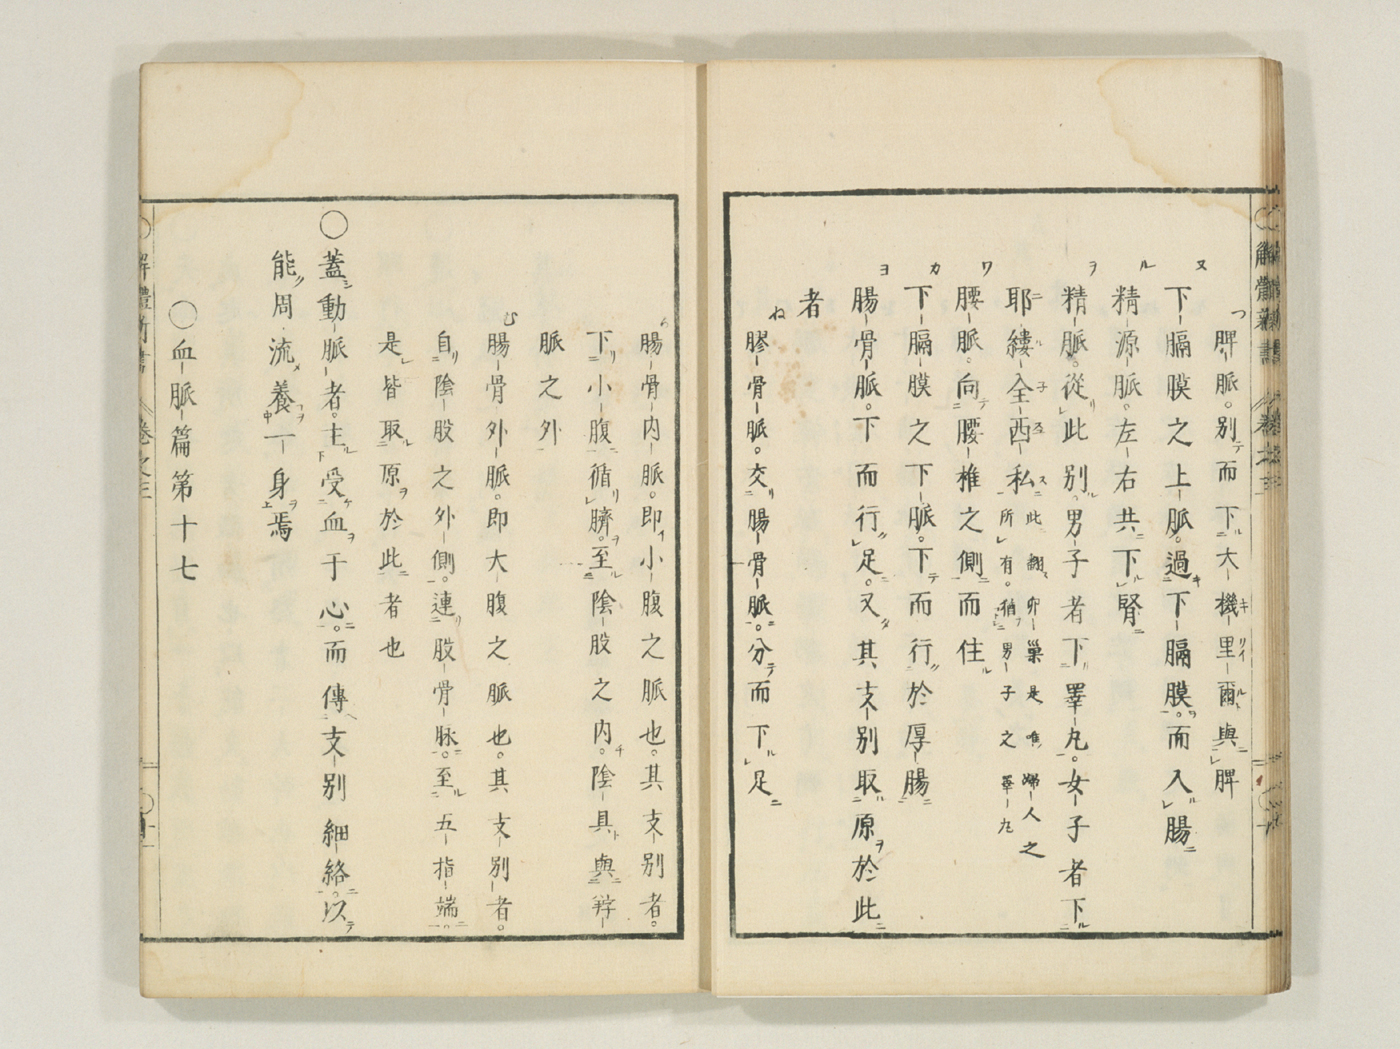 脾脈。別而下大機里爾與脾
下膈膜之上脈。過下膈膜。而入腸
精源脈。左右共下腎
精脈。從此別。男子者下睪丸。女子者下
耶縷全西私此翻卯巢是唯婦人之所有。猶男子之睪丸
腰脈。向腰椎之側而住
下膈膜之下脈。下而行於厚腸
腸骨脈。下而行足。又其支別取原於此
者
膠骨脈。交腸骨脈。分而下足
腸骨内脈。即小腹之脈也。其支別者。
下小腹循臍。至陰股之内。陰具與
脈之外
腸骨外脈。即大腹之脈也。其支別者。
自陰股之外側。連股骨脈。至五指端。
是皆取原於此者也
〇蓋動脈者。主受血于心。而傳支別細絡。以
能周流養一身焉
〇血脈篇第十七
解體新書 卷之三